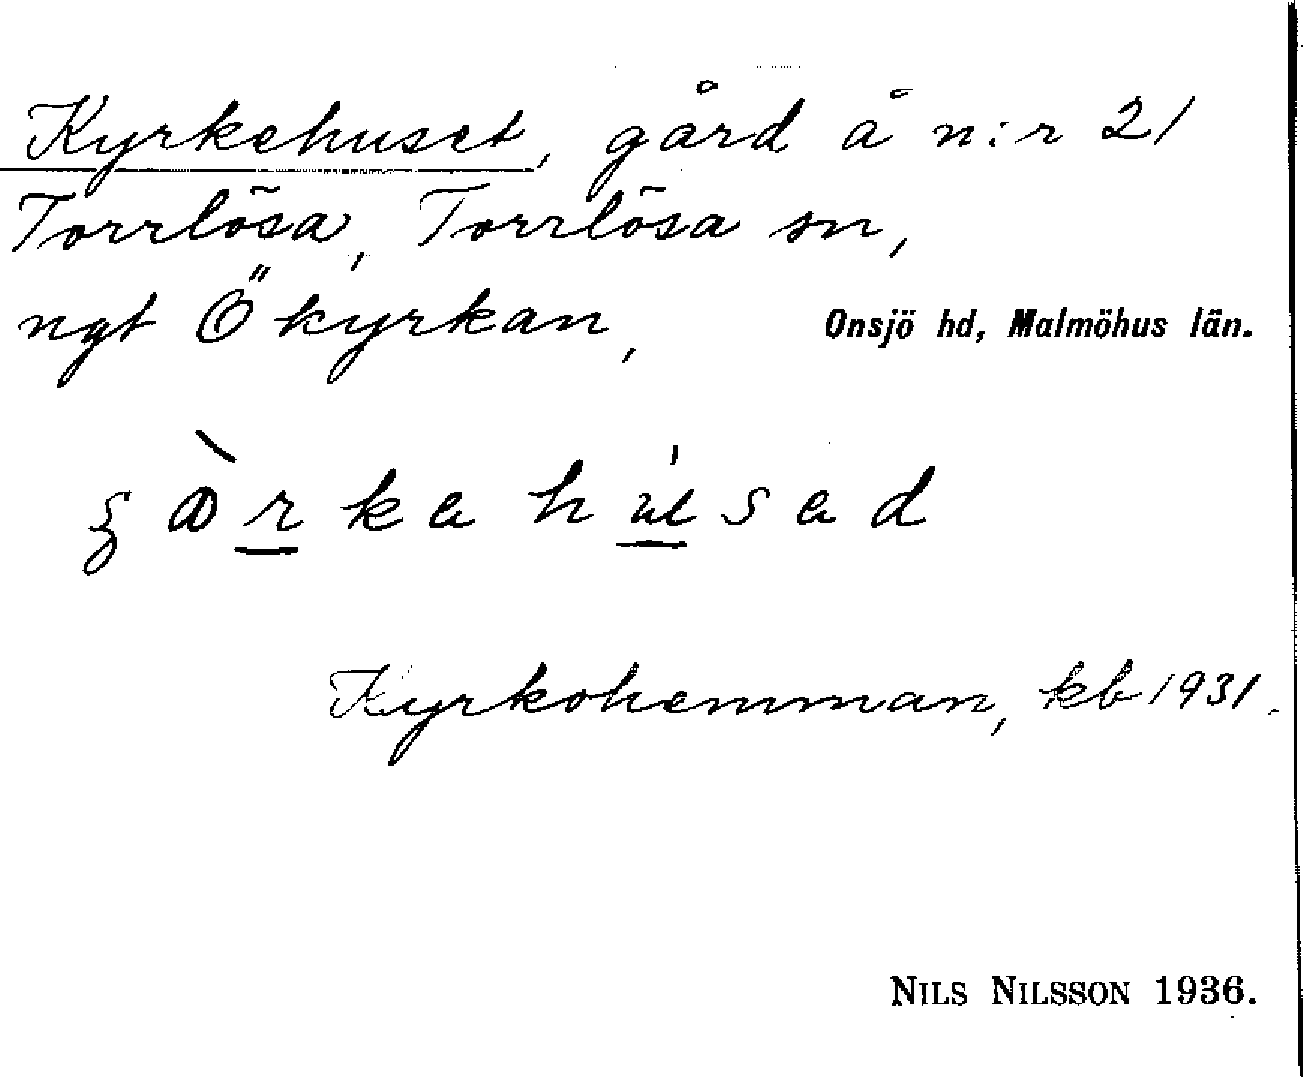 Kyrkehuset, gård å n:r 21
Torrlösa, Torrlösa sn,
ngt Ö kyrkan, Onsjö hd, Malmöhus län.
Kyrkohemman, kb 1931.
NILS NILSSON 1936.